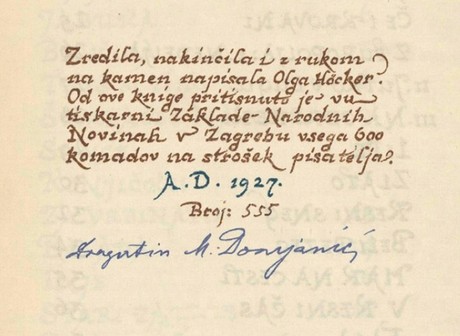 Zredila, nakinčila i z rukom
na kamen napisala Olga Höcker.
Od ove knige pritisnuto je vu
tiskarni Zaklade Narodnih
Novinah v Zagrebu vsega 600
komadov na strošek pisatelja.
A. D. 1927.
Broj: 555
Dragutin M. Domjanić